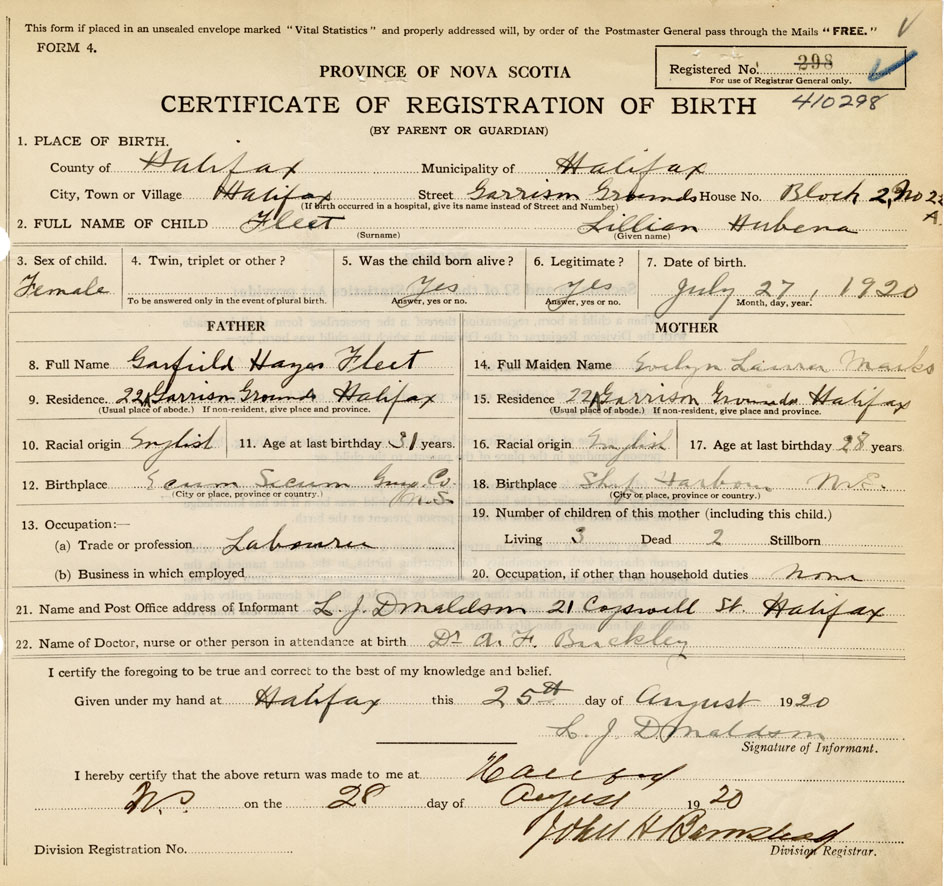 This form if placed in an unsealed envelope marked "Vital Statistics" and properly addressed will, by order of the Postmaster General pass through the Mails "FREE."
FORM 4.
Registered No. 298
For use of Registrar General only.
PROVINCE OF NOVA SCOTIA
CERTIFICATE OF REGISTRATION OF BIRTH 410298
(BY PARENT OR GUARDIAN)
1. PLACE OF BIRTH.
County of Halifax Municipality of Halifax
City, Town or Village Halifax Street Garrison Grounds House No. Block 2, No 22
A.
(If birth occurred in a hospital, give its name instead of Street and Number)
2. FULL NAME OF CHILD Fleet Lillian Hubena
(Surname) (Given name)
3. Sex of child. 4. Twin, triplet or other? 5. Was the child born alive? 6. Legitimate? 7. Date of birth.
Female Yes yes July 27, 1920
To be answered only in the event of plural birth. Answer, yes or no. Answer, yes or no. Month, day, year.
FATHER MOTHER
8. Full Name Garfield Hayes Fleet 14. Full Maiden Name Evelyn Lauren Marks
9. Residence. 22A Garrison Grounds Halifax 15. Residence 22A Garrison Grounds Halifax
(Usual place of abode.) If non-resident, give place and province. (Usual place of abode.) If non-resident, give place and province.
10. Racial origin English 11. Age at last birthday 31 years. 16. Racial origin English 17. Age at last birthday 28 years
12. Birthplace Ecum Secum Guys. Co. N.S. 18. Birthplace Ship Harbour N.S.
(City or place, province or country.) (City or place, province or country.)
13. Occupation:— 19. Number of children of this mother (including this child.)
(a) Trade or profession Labourer Living 3 Dead 2 Stillborn
(b) Business in which employed 20. Occupation, if other than household duties None
21. Name and Post Office address of Informant L. J. Donaldson 21 Cogswell St. Halifax
22. Name of Doctor, nurse or other person in attendance at birth Dr. A. F. Buckley
I certify the foregoing to be true and correct to the best of my knowledge and belief.
Given under my hand at Halifax this 25th day of August 1920
L. J. Donaldson
Signature of Informant.
I hereby certify that the above return was made to me at Halifax
N.S. on the 28 day of August 1920
John H Barnstead
Division Registration No. Division Registrar.